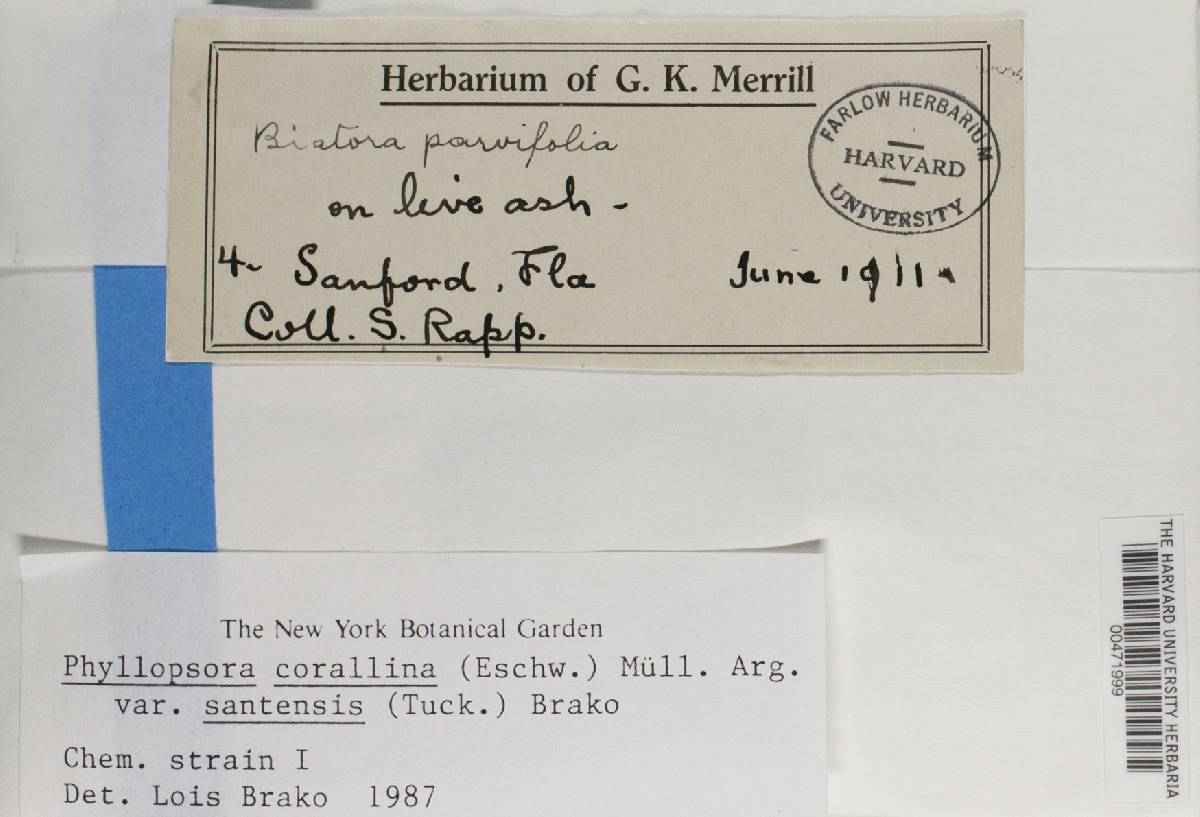 Herbarium of G. K. Merrill
Biatora parvifolia
on live ash -
4. Sanford, Fla June 1911.
Coll. S. Rapp.
FARLOW HERBARIUM
HARVARD
UNIVERSITY
The New York Botanical Garden
Phyllopsora corallina (Eschw.) Müll. Arg.
var. santensis (Tuck.) Brako
Chem. strain I
Det. Lois Brako 1987
THE HARVARD UNIVERSITY HERBARIA
00471999